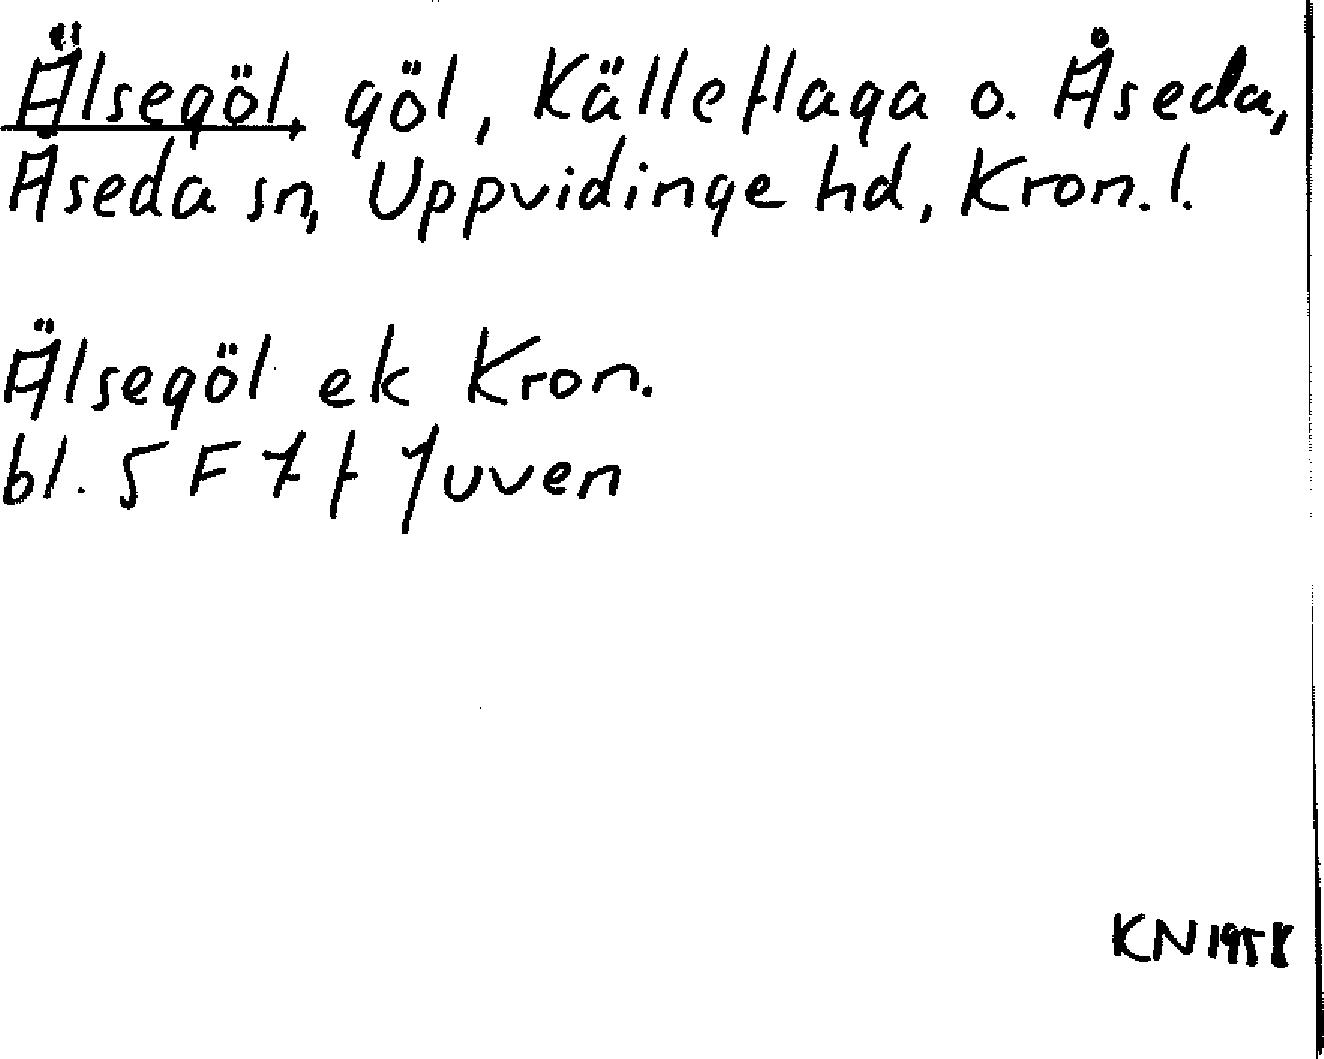 Älsegöl, göl, Källeflaga o. Åseda,
Åseda sn, Uppvidinge hd, Kron. l.
Älsegöl ek Kron.
bl. 5 F 7 f Juven
KN 1958